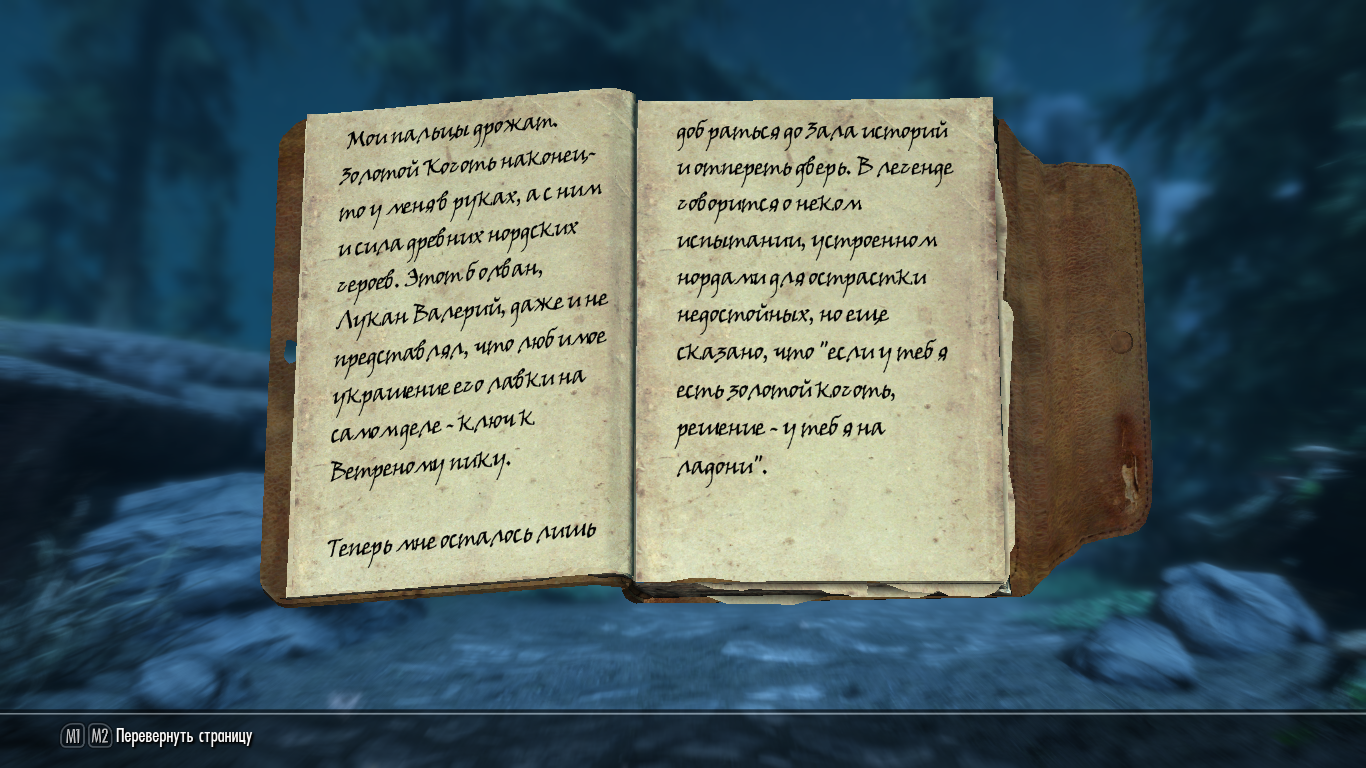 Мои пальцы дрожат.
Золотой Коготь наконец-
то у меня в руках, а с ним
и сила древних нордских
героев. Этот болван,
Лукан Валерий, даже и не
представлял, что любимое
украшение его лавки на
самом деле - ключ к
Ветреному пику.
Теперь мне осталось лишь
добраться до Зала историй
и отпереть дверь. В легенде
говорится о неком
испытании, устроенном
нордами для острастки
недостойных, но еще
сказано, что "если у тебя
есть золотой коготь,
решение - у тебя на
ладони".
M1 M2 Перевернуть страницу